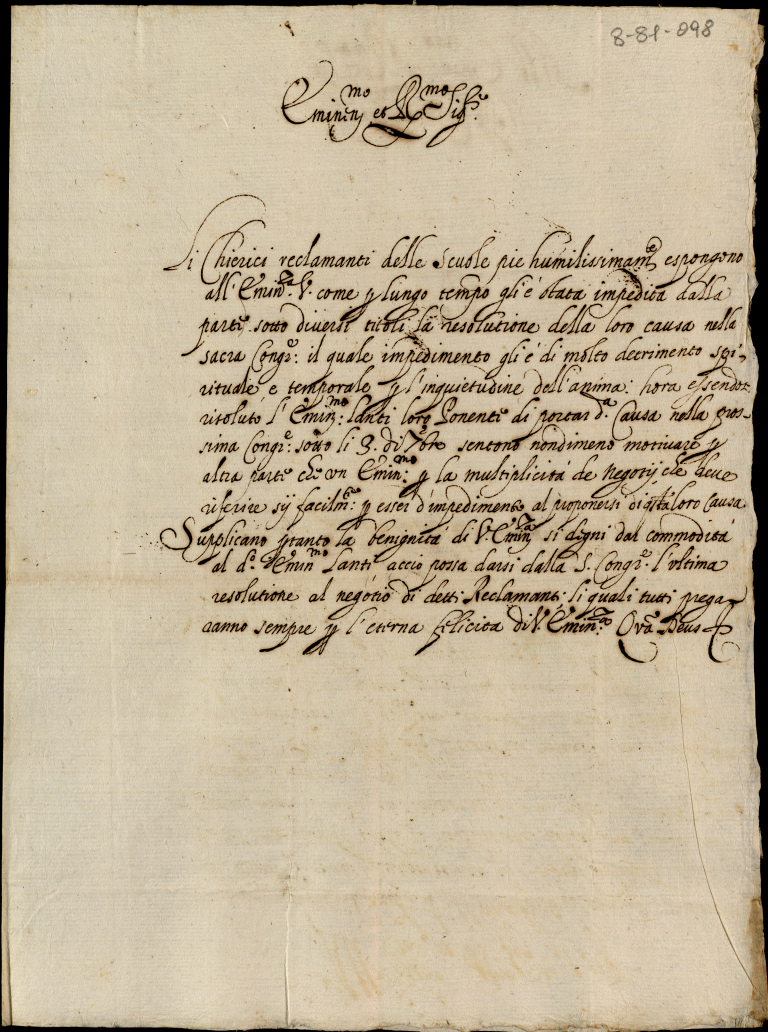 8-81-098
Eminen.mo et R.mo Sig.re
Li Chierici reclamanti delle Scuole pie humilissimam.te espongono
all'Emin.za V. come p lungo tempo gli è stata impedita dalla
parte sotto diversi titoli la resolutione della loro causa nella
sacra Congr.: il quale impedimento gli è di molto decrimento spi-
rituale e temporale p l'inquietudine dell'anima: hora essendosi
risoluto l'Emin.mo: Lanti loro Ponente di portar d.a Causa nella pros-
sima Congr.e: sotto li 3. di 7bre sentono nondimeno motivare p
altra parte che un Emin.mo: p la multiplicità de negotij che deve
riferire sij facilm.te: p esser d'impedimento al proponersi di q.sta loro Causa.
Supplicano p tanto la benignità di V. Emin.za si degni dar commodità
al d.o Emin.mo Lanti acciò possa darsi dalla S. Congr.e l'ultima
resolutione al negotio di detti Reclamanti: li quali tutti prega-
ranno sempre p l'eterna felicità di V. Emin.za: Qua Deus